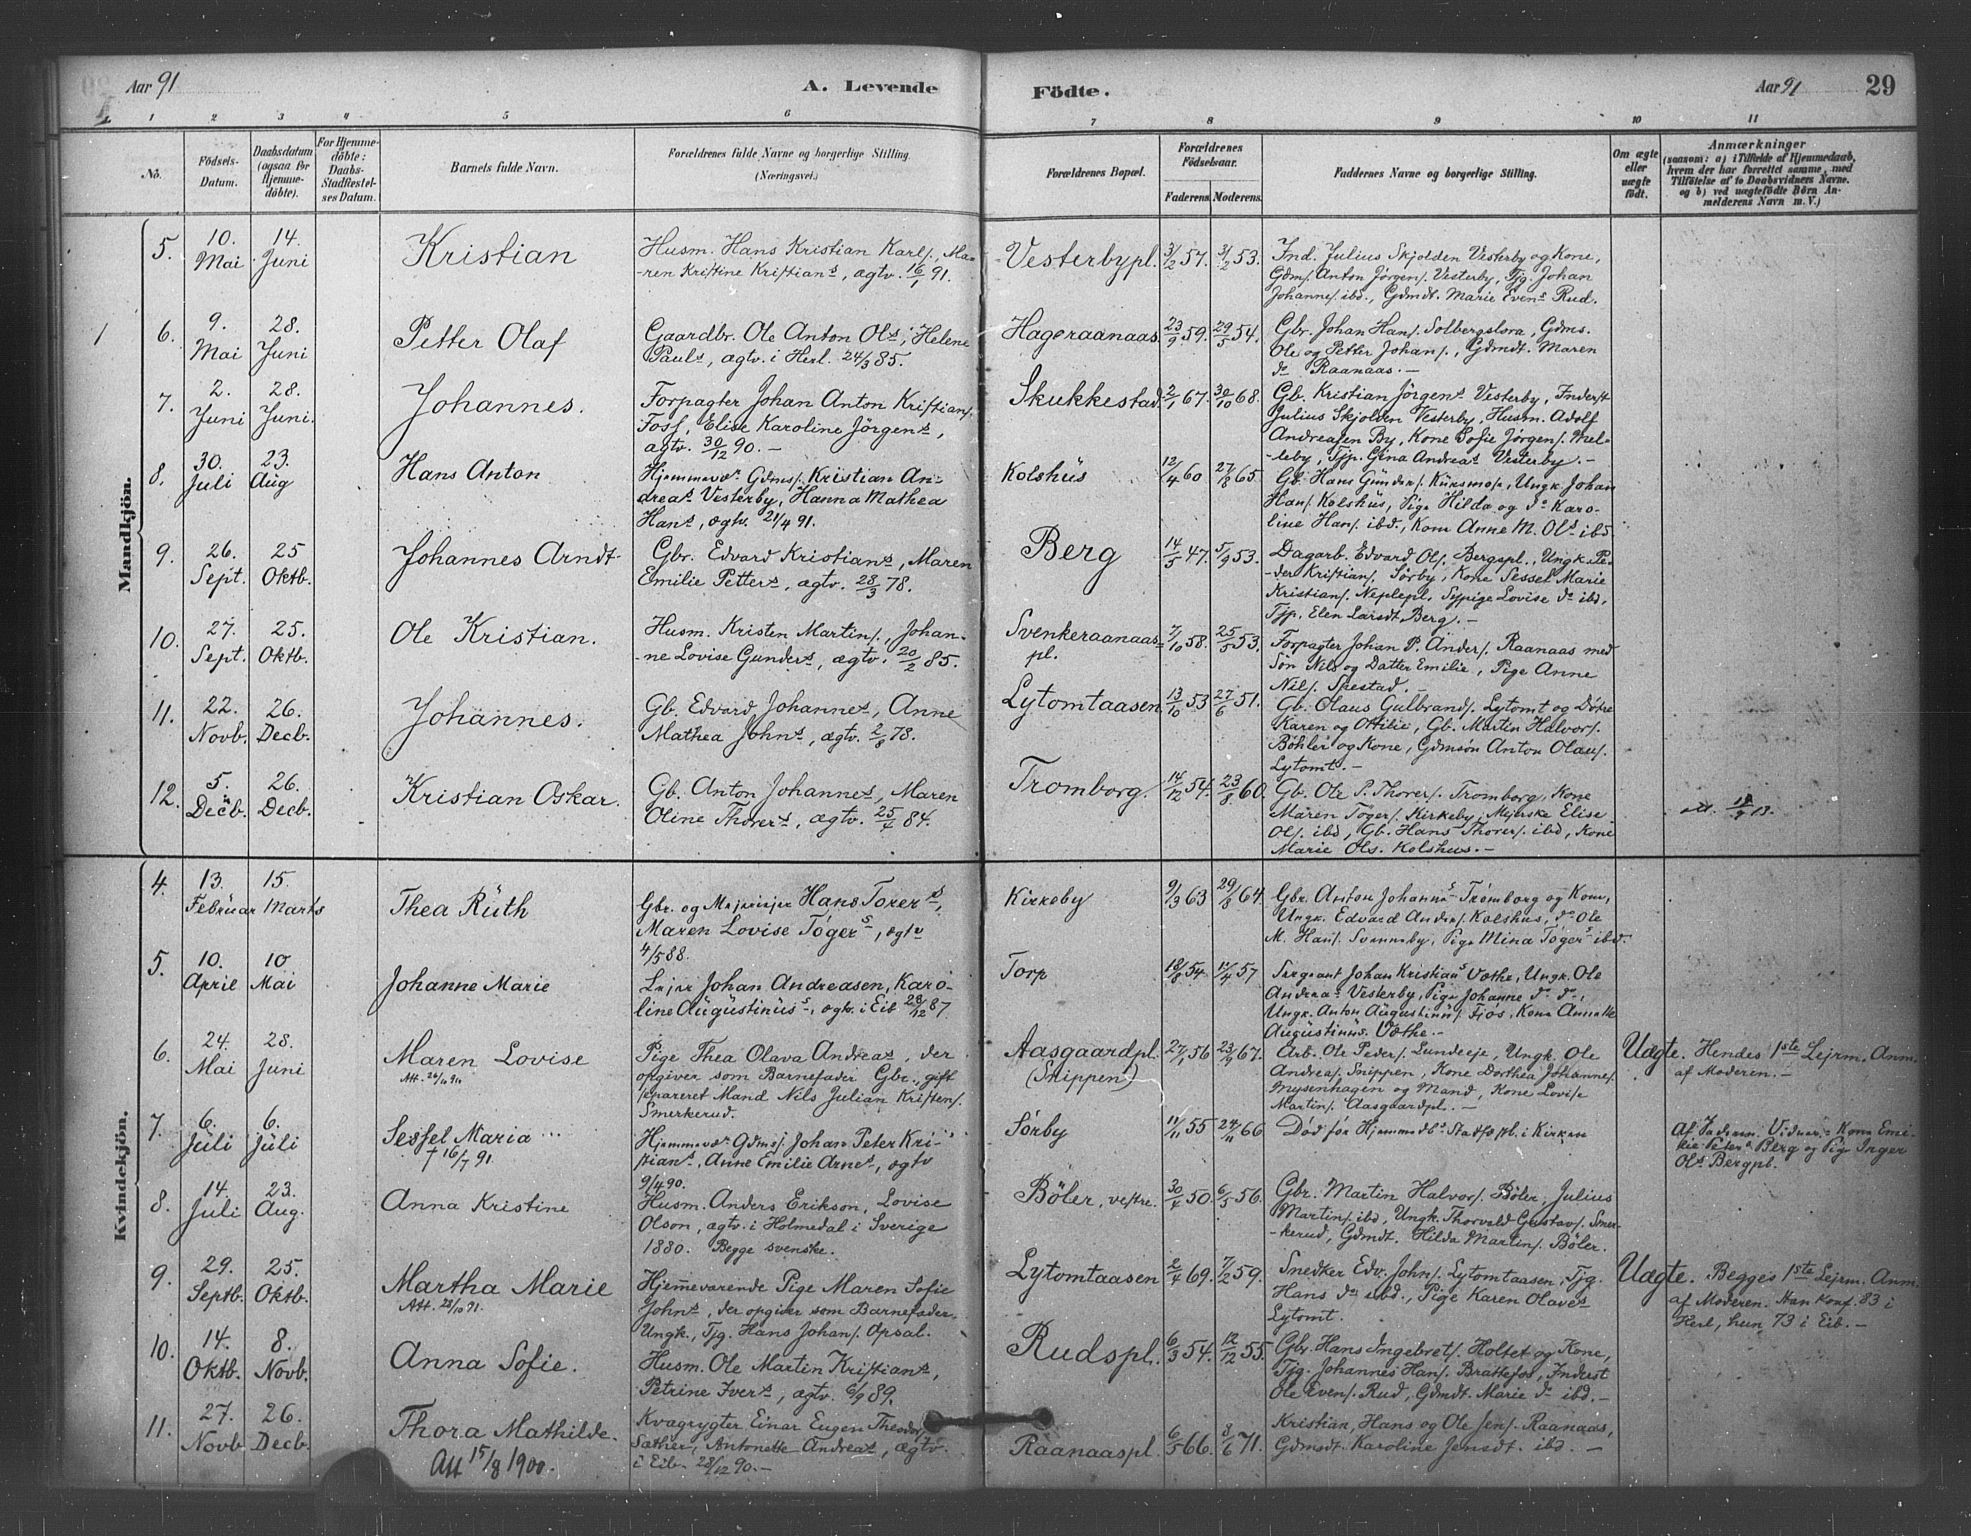 Aar 91 A. Levende Födte. Aar 91 29
1 2 3 4 5 6 7 8 9 10 11
No. Födsels-Datum. Daabsdatum (ogsaa for Hjemmedöbte). For Hjemmedöbte: Daabs-Stadfæstelses Datum. Barnets fulde Navn. Forældrenes fulde Navne og borgerlige Stilling. (Næringsvei.) Forældrenes Bopæl. Forældrenes Födselsaar. Faderens. Moderens. Faddernes Navne og borgerlige Stilling. Om ægte eller uægte födt. Anmærkninger (saasom: a) i Tilfælde af Hjemmedaab, hvem der har forrettet samme, med Tilföielse af to Daabsvidners Navne. og b) ved uægtefödte Börn Anmelderens Navn m. V.)
Mandkjön.
5. 10. Mai 14. Juni Kristian
Husm. Hans Kristian Karls., Ma-
ren Kristine Kristians, ægtv. 16/1 91.
Vesterbypl. 3/2 57. 3/2 53.
Ind. Julius Skjolden Vesterby og Kone,
Gdms. Anton Jørgens. Vesterby, Tjg. Johan
Johannes. ibd., Gdmdt. Marie Evens Rud.
1 6. 9. Mai 28. Juni Petter Olaf
Gaardbr. Ole Anton Ols, Helene
Pauls, ægtv. i Herl. 24/3 85.
Hageraanaas. 23/9 59. 29/5 54.
Gbr. Johan Hans. Solbergslora, Gdms.
Ole og Petter Johans., Gdmdt. Maren
do Raanaas. -
7. 2. Juni 28. Juni. Johannes.
Forpagter Johan Anton Kristians.
Foss, Elise Karoline Jörgens,
ægtv. 30/12 90. -
Skukkestad 2/1 67. 30/10 68.
Gb. Kristian Jörgens Vesterby, Inderst
Julius Skjolden Vesterby, Husm. Adolf
Andreasen By, Kone Sofie Jörgens. Mel-
-leby, Tjp. Gina Andreas Vesterby. -
8. 30. Juli 23. Aug Hans Anton
Hjemmevær Gdms. Kristian An-
dreas Vesterby, Hanna Mathea
Hans, ægtv. 21/4 91.
Kolshüs 12/4 60 27/8 65.
Gb. Hans Günders. Küksmose, Ungk Johan
Hans. Kolshüs, Pige Hilda og do Karo-
line Hans. ibd., Kone Anne M. Ols ibd
9. 26. Sept. 25 Oktb. Johannes Arndt
Gbr. Edvard Kristians, Maren
Emilie Petters, ægtv. 28/3 78.
Berg 14/5 47. 5/9 53.
Dagarb. Edvard Ols. Bergspl., Ungk. Pe-
-der Kristians. Sørby, Kone Sessel Marie
Kristians. Neplepl., Sypige Lovise do ibd,
Tjp. Elen Larsdt. Berg. -
10. 27. Sept. 25. Oktb. Ole Kristian.
Husm. Kristen Martins., Johan-
-ne Lovise Gunders, ægtv. 20/2 85.
Svenkeraanaas-
pl. 7/10 58. 25/5 53.
Forpagter Johan P. Anders. Raanaas med
Søn Nils og Datter Emilie, Pige Anne
Nils. Spestad. -
11. 22. Novb. 26. Decb. Johannes.
Gb. Edvard Johannes, Anne
Mathea Johns, ægtv. 2/8 78.
Lytomtaasen 13/10 53 27/6 51.
Gb. Olaus Gulbrands. Lytomt og Døtre
Karen og Ottilie, Gb. Martin Halvors.
Bøhler og Kone, Gdmsøn Anton Olaus.
Lytomt. -
12. 5. Decb. 26. Decb. Kristian Oskar.
Gb. Anton Johannes, Maren
Oline Thorers, ægtv. 25/4 84.
Tromborg. 14/12 54. 23/8 60.
Gb. Ole P. Thorers. Tromborg, Kone
Maren Tøgers. Kirkeby, Mejerske Elise
Ols. ibd, Gb. Hans Thorers. ibd, Kone
Marie Ols. Kolshus. -
att. 18/9 13.
Kvindekjön.
4. 13. Februar 15. Marts Thea Rüth
Gbr. og Mejerisjer Hans Torers,
Maren Lovise Tøgers, ægtv
4/5 88.
Kirkeby 9/3 63 29/8 64.
Gbr. Anton Johanns Trömborg og Kone,
Ungk. Edvard Anders. Kolshus, do Ole
M. Hans. Svenneby, Pige Mina Tøgers ibd.
5. 10. April 10 Mai Johanne Marie
Lejer Johan Andreasen, Karo-
line Augüstinüss, ægtv. i Eib 28/12 87
Torp 18/8 54 11/4 57
Sergeant Johan Kristians Væthe, Ungk. Ole
Andreas Vesterby, Pige Johanne do do,
Ungk. Anton Augüstinüs. Fjös, Kone Anna M
Augüstinüs. Væthe. -
6. 24. Mai 28. Juni Maren Lovise
Att. 26/10 910
Pige Thea Olava Andreas, der
opgiver som Barnefader Gbr., gift
separeret Mand Nils Julian Kristens.
Smerkerud.
Aasgaardpl.
(Snippen) 27/1 56 23/9 67.
Arb. Ole Peders. Lundeeje, Ungk. Ole
Andreas. Snippen, Kone Dorthea Johannes.
Mysenhagen og Mand, Kone Lovise
Martins. Aasgaardpl. -
Uægte. Hendes 1ste Lejrm. Anm.
af Moderen. -
7. 6. Juli 6. Jüli Sessel Maria
† 16/7 91.
Hjemmevær Gdms. Johan Peter Kri-
stians, Anne Emilie Arnes, ægtv
9/4 90.
Sørby 11/11 55 24/11 66
Død før Hjemmedbs Stadfæst. i Kirken
Af Jordem. Vidner: Kone Emi-
lie Peters Berg og Pige Inger
Ols Bergpl.
8. 14. Juli 23. Aug. Anna Kristine
Husm. Anders Erikson, Lovise
Olson, ægtv. i Holmedal i Sverige
1880. Begge svenske.
Böler, vestre. 30/4 50. 6/5 56.
Gbr. Martin Halvors. Böler, Julius
Martins. ibd, Ungk. Thorvald Gustavs. Smer-
-kerud, Gdmdt. Hilda Martins. Böler.
9. 29. Septb. 25. Oktb. Martha Marie
Att. 28/10 91.
Hjemmeværende Pige Maren Sofie
Johns, der opgiver som Barnefader
Ungk., Tjg. Hans Johans. Opsal.
Lytomtaasen 2/4 69. 7/2 59.
Snedker Edv. Johns. Lytomtaasen, Tjg.
Hans do ibd., Pige Karen Olaves
Lytomt.
Uægte. Begges 1ste Lejrm. Anm.
af Moderen. Han konf. 83 i
Herl, hun 73 i Eib. -
10. 14. Oktb. 8. Novb. Anna Sofie.
Husm. Ole Martin Kristians,
Petrine Ivers, ægtv. 6/9 89.
Rudspl. 6/3 54. 12/12 55.
Gbr. Hans Ingebrets. Holtet og Kone,
Tjg. Johannes Hans. Brattefos, Inderst
Ole Evens. Rud, Gdmdt. Marie do ibd. -
11. 27. Novb 26. Decb. Thora Mathilde.
Att 15/8 1900.
Kvægrygter Einar Eugen Theodor
Sæther, Antonette Andreas, ægtv.
i Eib. 28/12 90. -
Raanaaspl. 6/5 66. 8/6 71.
Kristian, Hans og Ole Jens. Raanaas,
Gdmdt. Karoline Jensdt. ibd. -